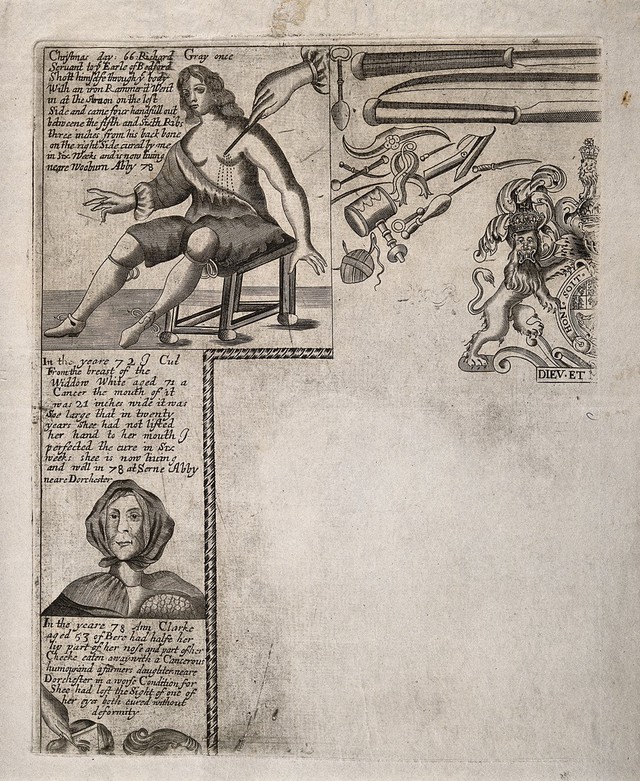 Christmas day 66 Richard Gray once
Servant to yͤ Earle of Bedford
Shott himselfe through yͤ body
With an iron Rammer it Went
in at the on the left
Side and came four handfull out
betweene the fifth and Sixth Ribs
three inches from his back bone
on the right Side cured by me
in Six Weeks and is now liuing
neare Wooburn Abby 78
HONI SOIT
DIEV·ET
In the yeare 72 J Cut
From the breast of the
Widdow White aged 71 a
Cancer the mouth of it
was 21 inches wide it was
Soe large that in twenty
years shee had not lifted
her hand to her mouth J
perfected the cure in Six
weeks shee is now liuing
and well in 78 at Serne Abby
neare Dorchester
In the yeare 78 Ann Clarke
aged 53 of Bere had halfe her
lip part of her nose and part of her
Cheeke eaten away with a Cancerous
humor and a farmers daughter neare
Dorchester in a worse Condition for
Shee had lost the Sight of one of
her eys both cured without
deformity